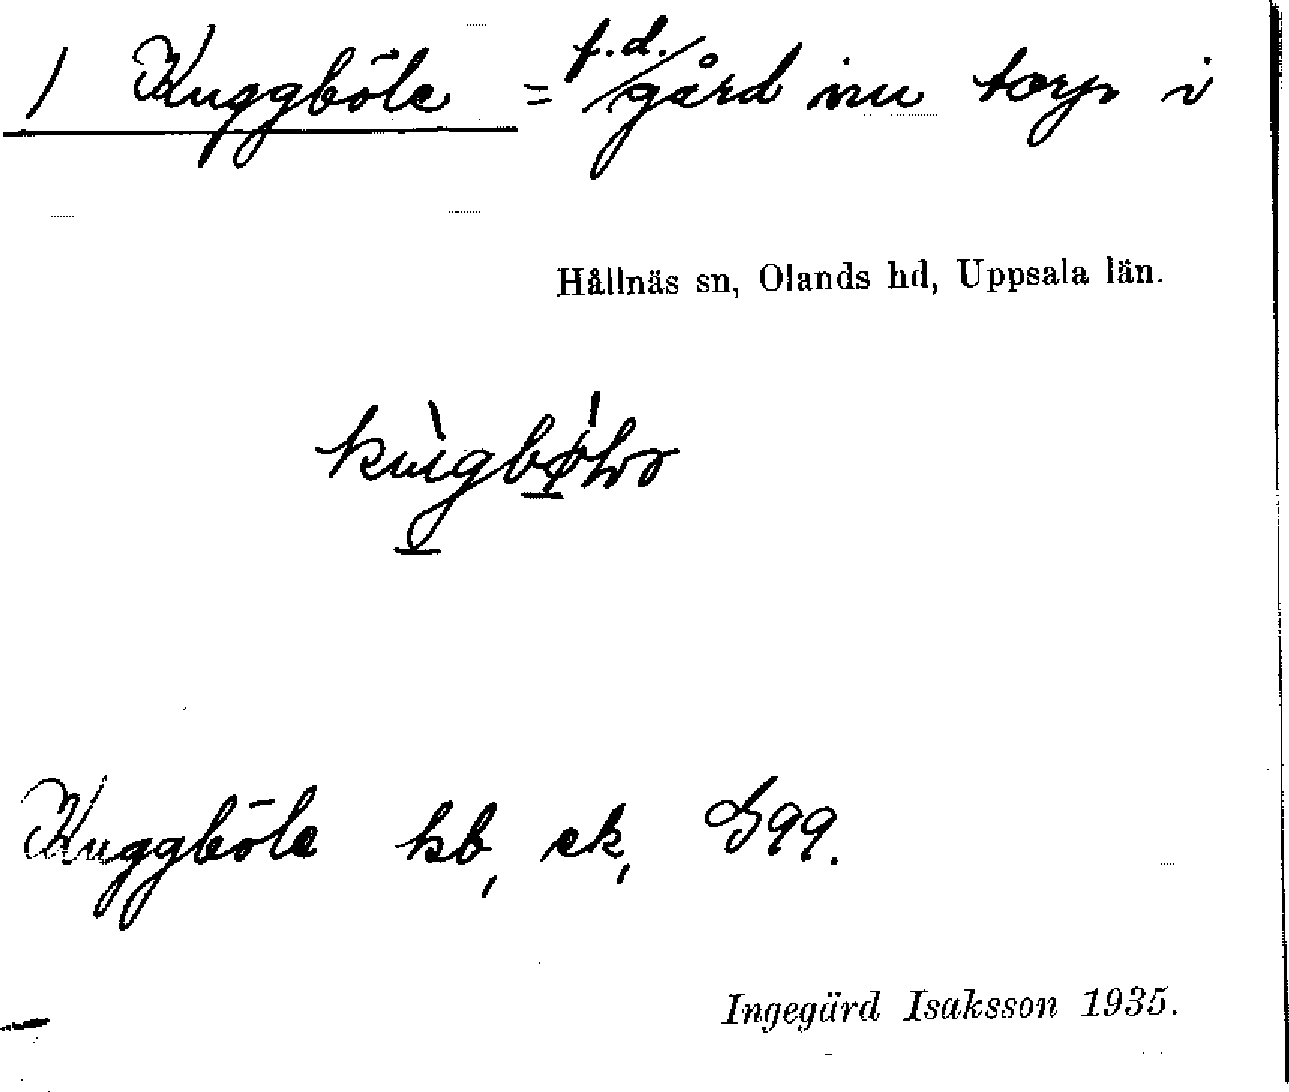 1 Kuggböle = f.d. gård nu torp i
Hållnäs sn, Olands hd, Uppsala län.
Kuggböle kb, ek, S 99.
Ingegärd Isaksson 1935.